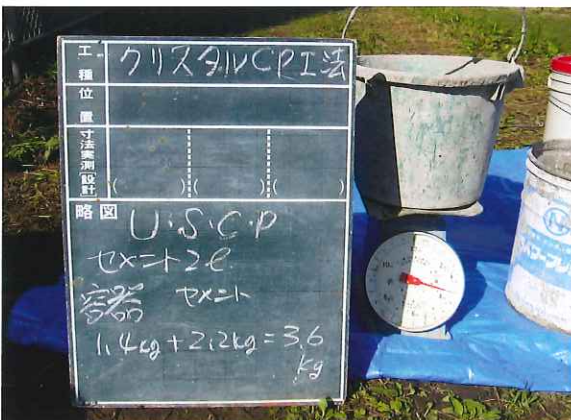 工種 クリスタルCPエ法
位置
寸法実測[設計] ( ) ( ) ( )
略図
U・S・C・P
セメント2ℓ
容器 セメント
1.4kg+2.2kg=3.6
kg